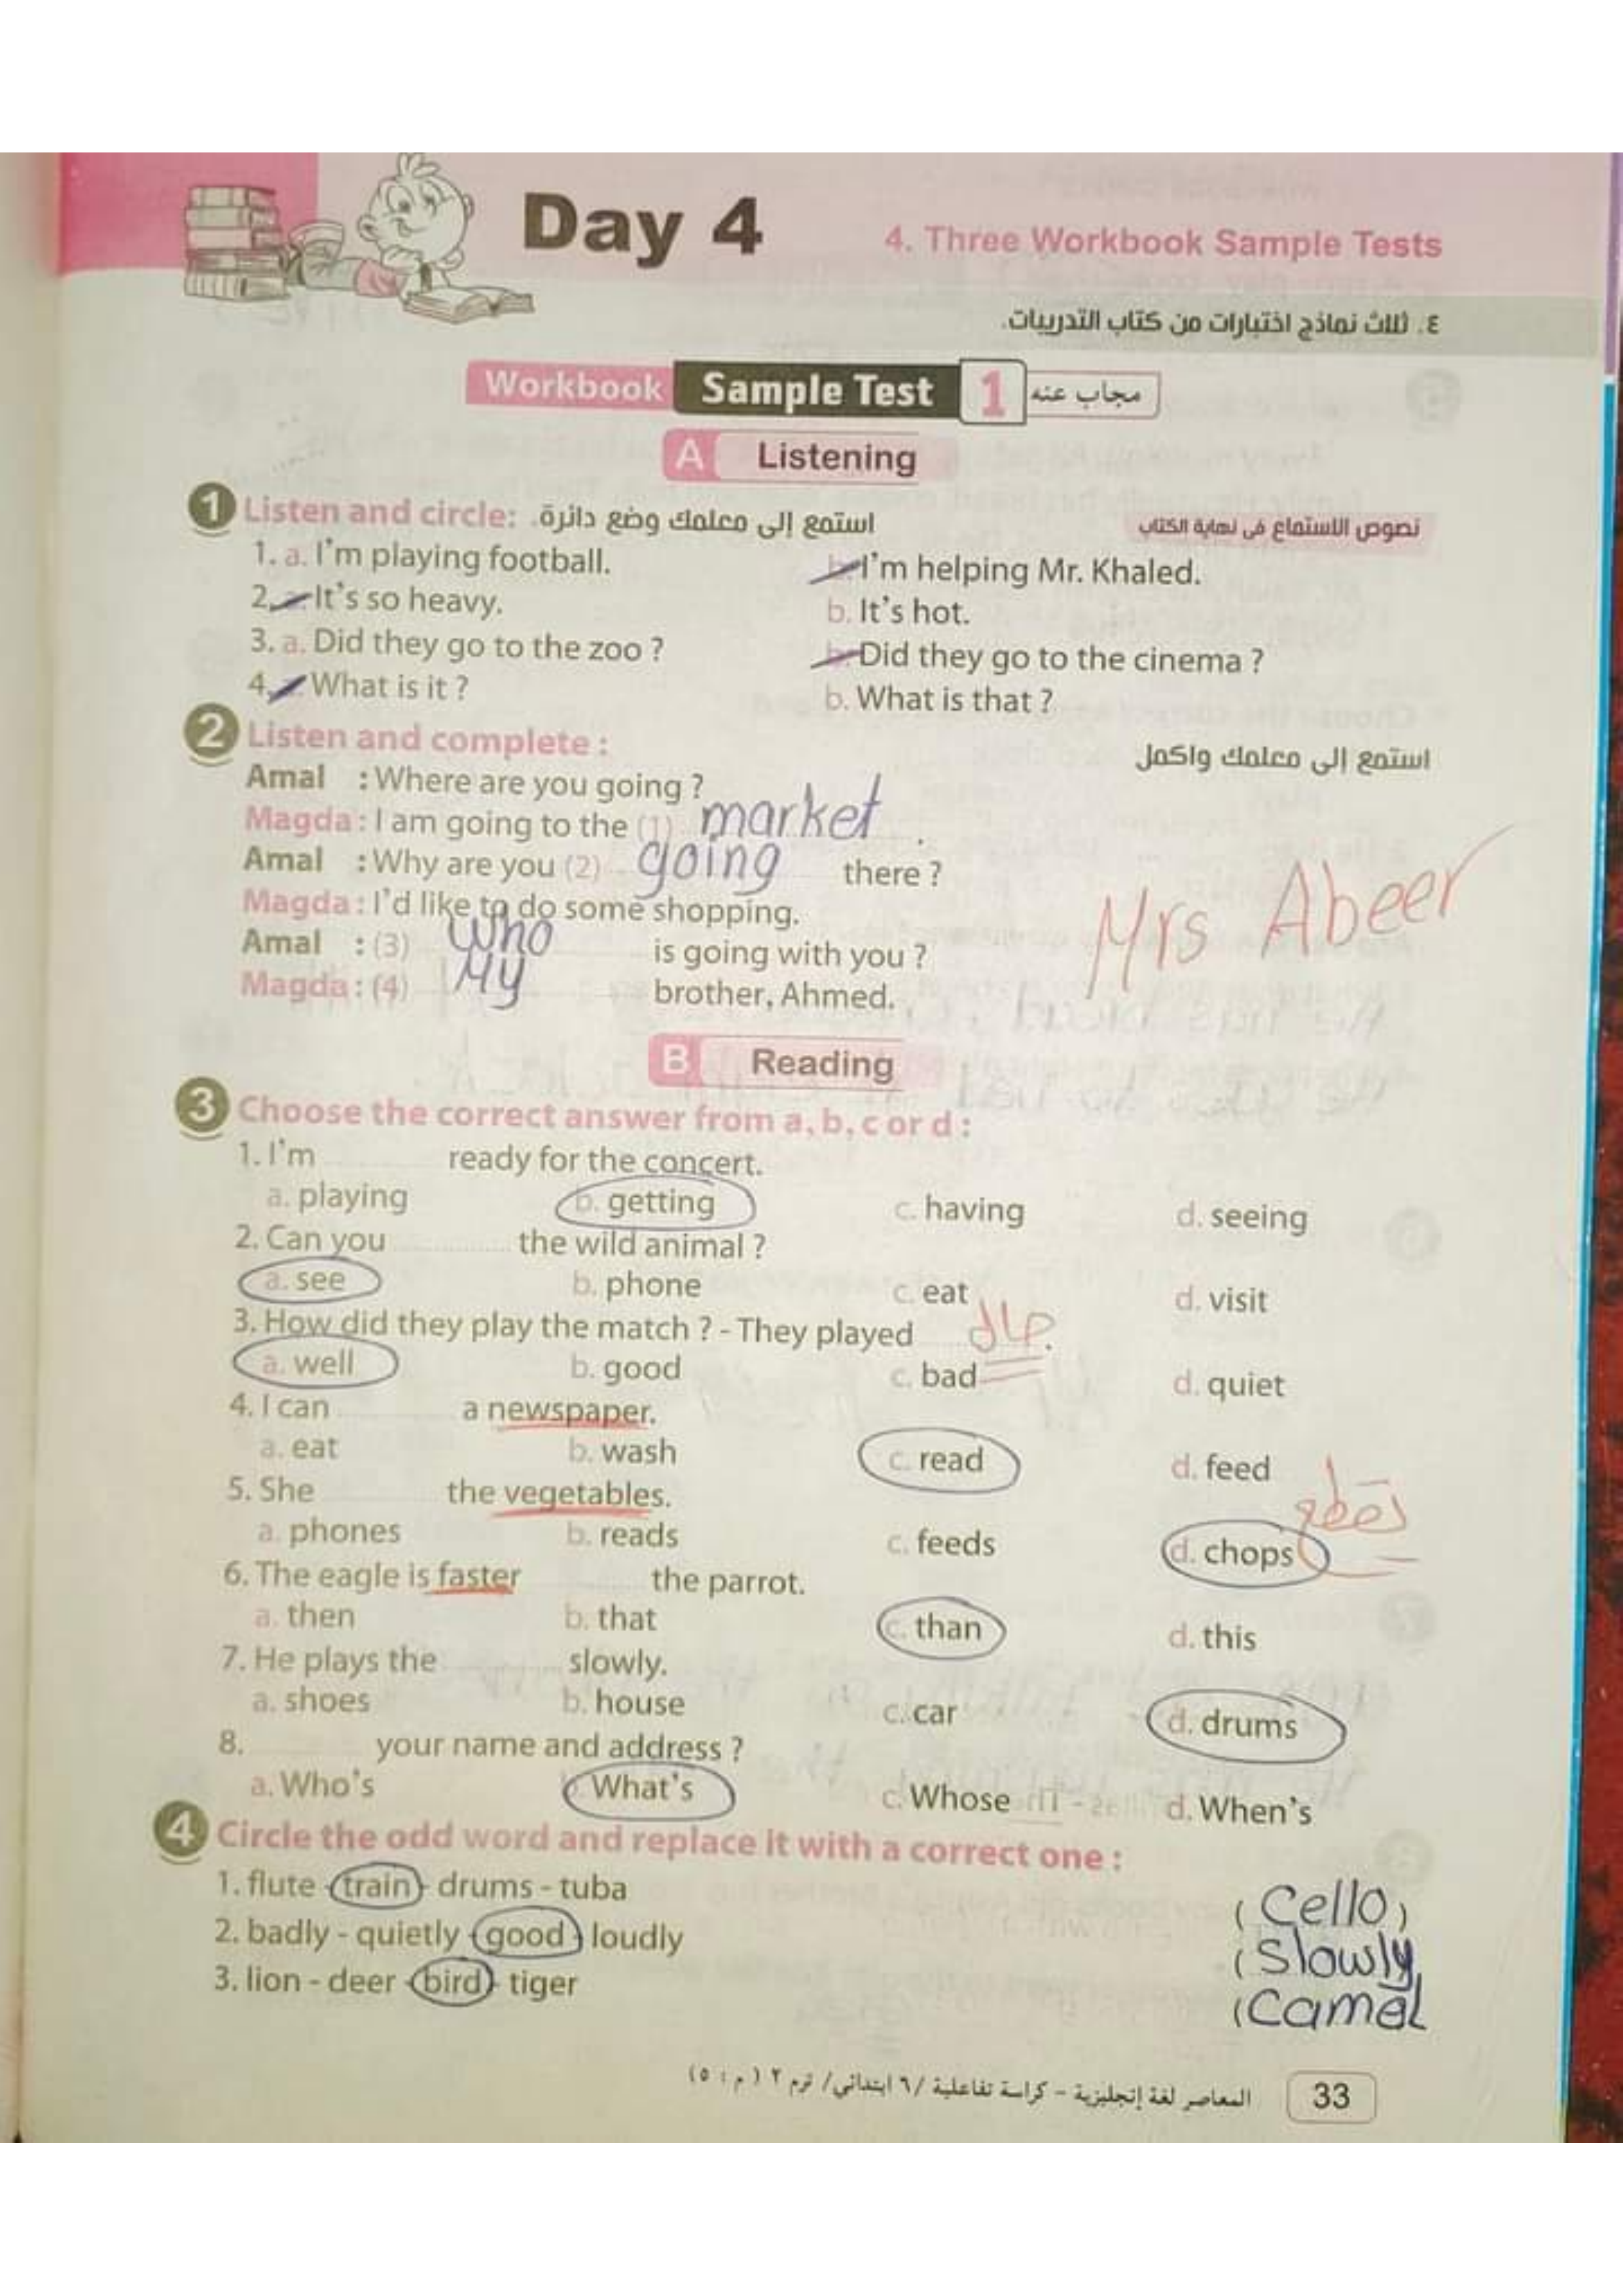 Day 4
4. Three Workbook Sample Tests
٤. ثلاث نماذج اختبارات من كتاب التدريبات.
Workbook Sample Test 1 مجاب عنه
A Listening
1 Listen and circle: استمع إلى معلمك وضع دائرة. نصوص الاستماع فى نهاية الكتاب
1. a. I'm playing football. b. I'm helping Mr. Khaled.
2. a. It's so heavy. b. It's hot.
3. a. Did they go to the zoo ? b. Did they go to the cinema ?
4. What is it ? b. What is that ?
2 Listen and complete : استمع إلى معلمك واكمل
Amal : Where are you going ?
Magda : I am going to the (1) market .
Amal : Why are you (2) going there ?
Magda : I'd like to do some shopping.
Amal : (3) Who is going with you ?
Magda : (4) My brother, Ahmed.
Mrs Abeer
B Reading
3 Choose the correct answer from a, b, c or d :
1. I'm ready for the concert.
a. playing b. getting c. having d. seeing
2. Can you the wild animal ?
a. see b. phone c. eat d. visit
3. How did they play the match ? - They played حال .
a. well b. good c. bad d. quiet
4. I can a newspaper.
a. eat b. wash c. read d. feed
5. She the vegetables.
a. phones b. reads c. feeds d. chops تقطع
6. The eagle is faster the parrot.
a. then b. that c. than d. this
7. He plays the slowly.
a. shoes b. house c. car d. drums
8. your name and address ?
a. Who's b. What's c. Whose d. When's
4 Circle the odd word and replace it with a correct one :
1. flute - train - drums - tuba ( Cello )
2. badly - quietly - good - loudly ( Slowly
3. lion - deer - bird - tiger ( Camel
المعاصر لغة إنجليزية - كراسة تفاعلية /٦ ابتدائي/ ترم ٢ (م : ٥) 33